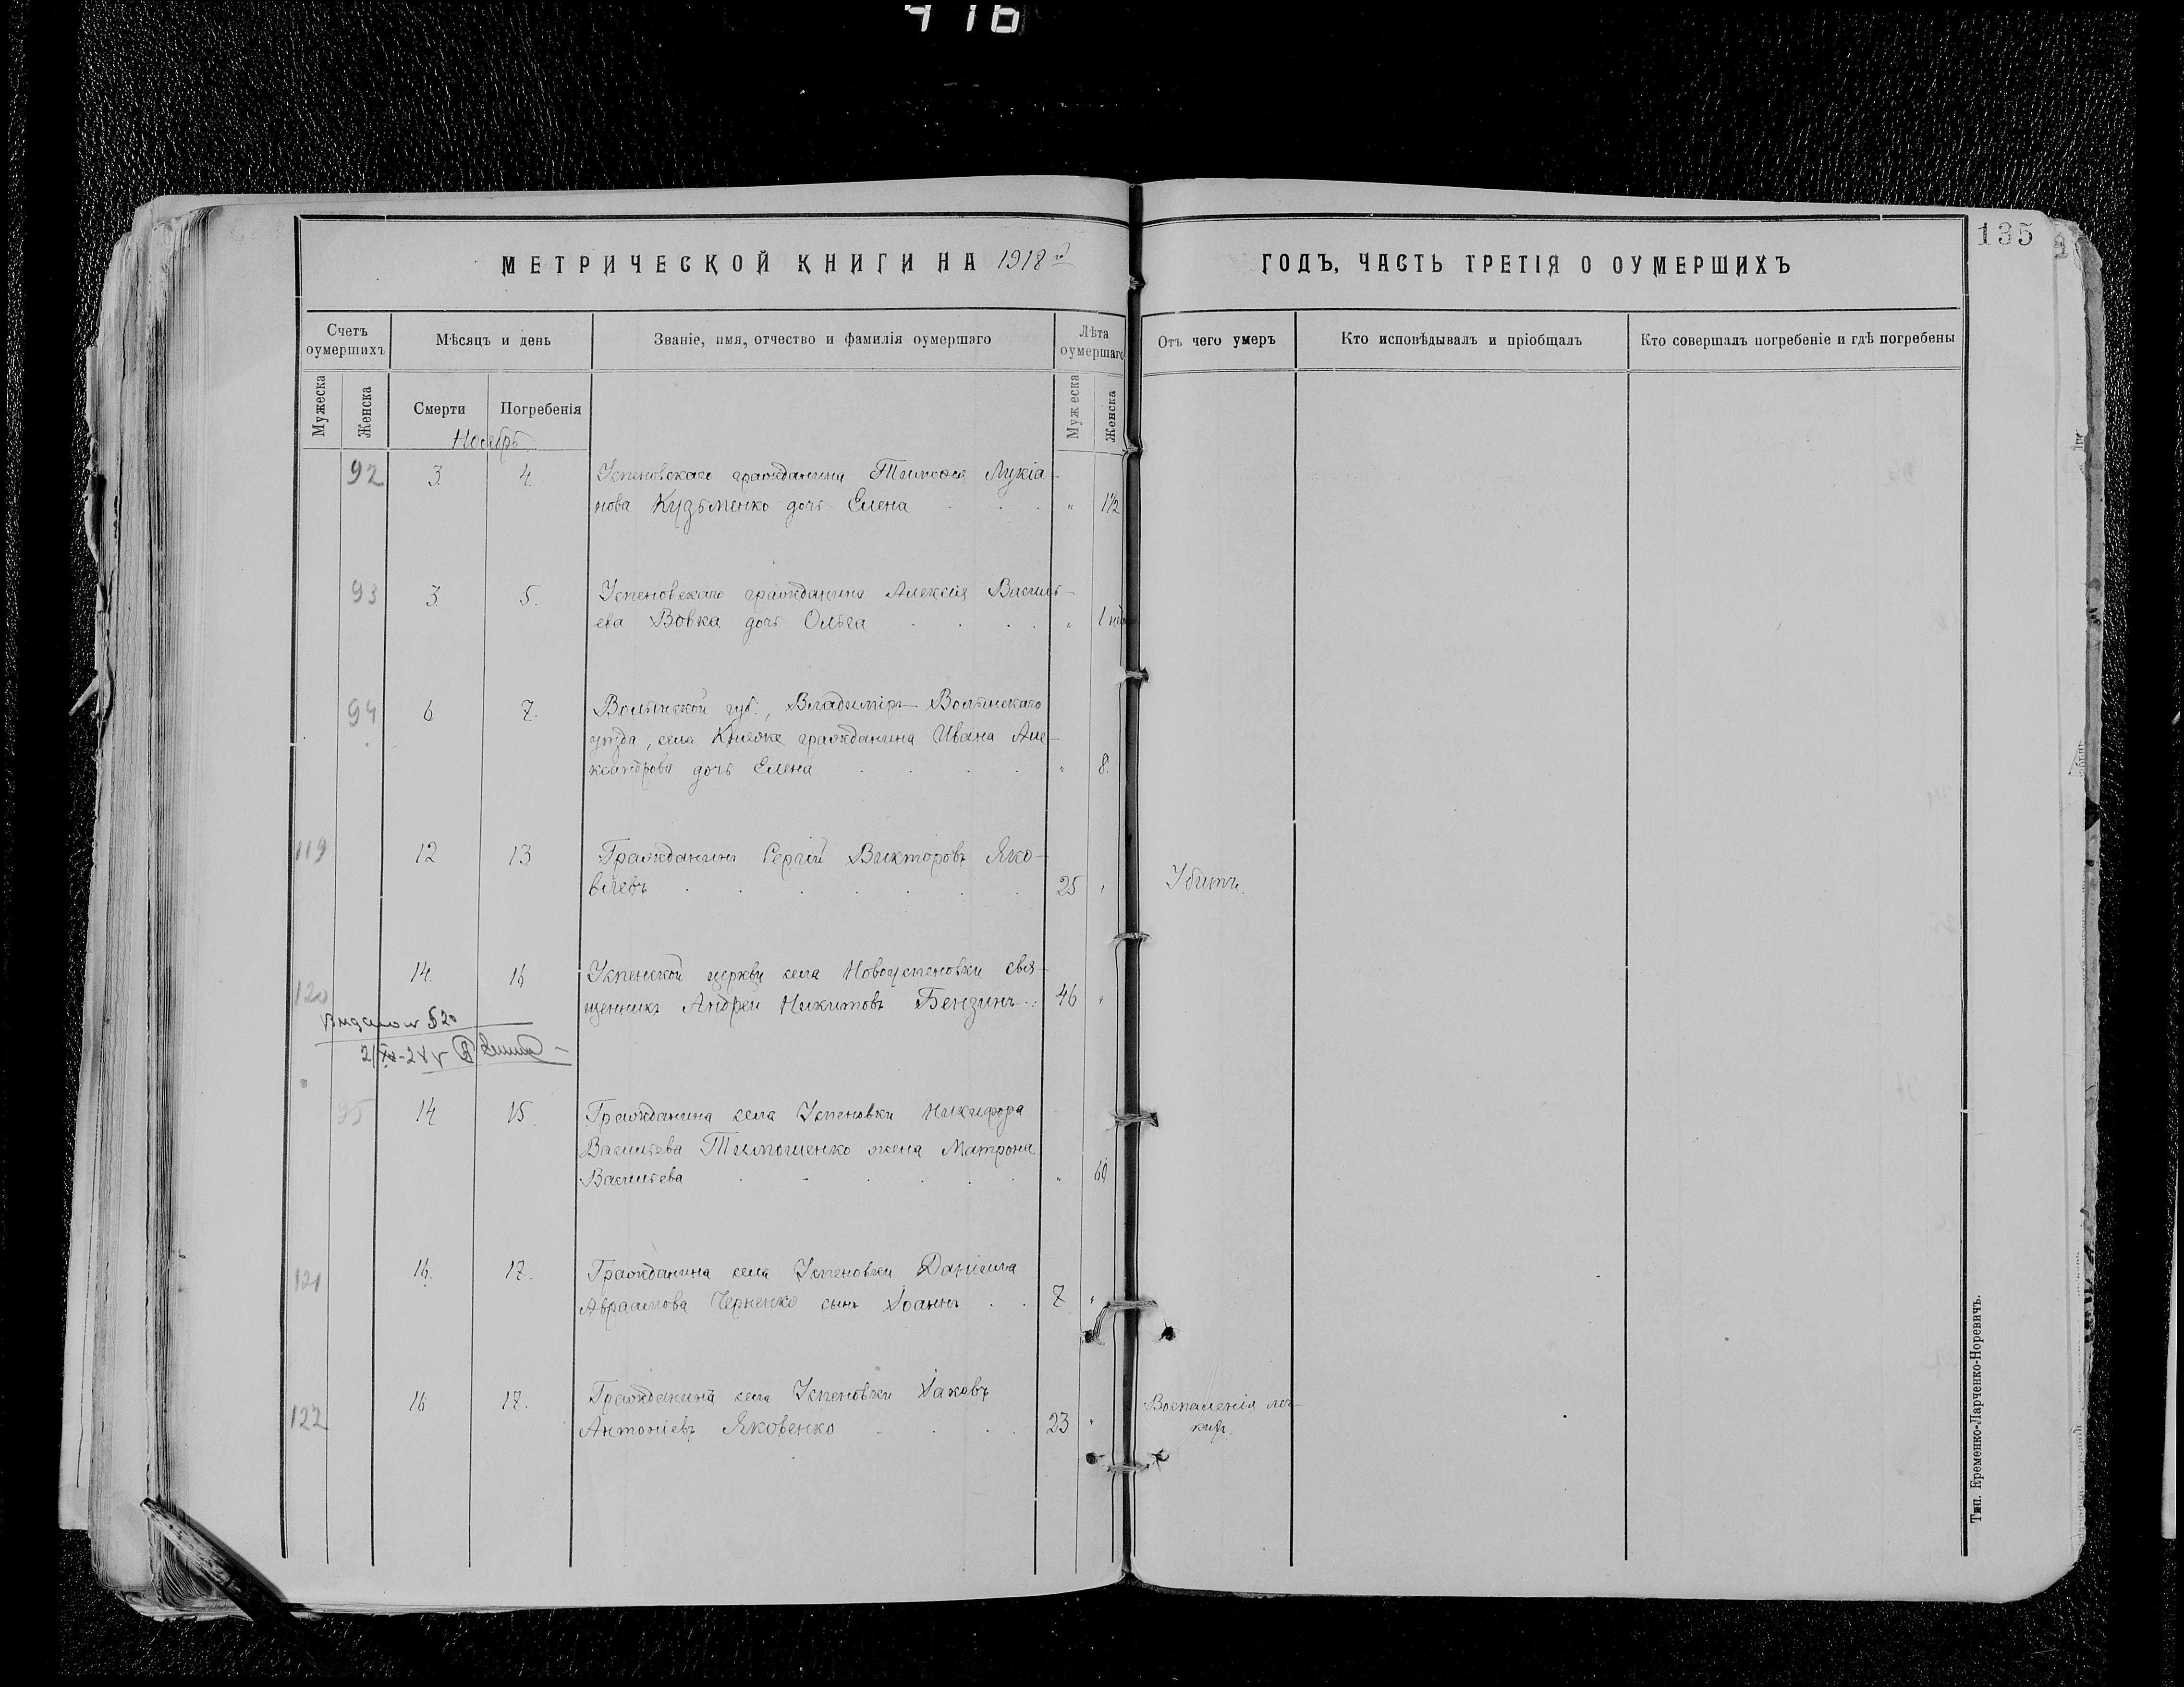 416
135
МЕТРИЧЕСКОЙ КНИГИ НА 1918й
ГОДЪ, ЧАСТЬ ТРЕТІЯ О ОУМЕРШИХЪ
Счетъ оумершихъ
Мѣсяцъ и день
Званіе, имя, отчество и фамилія оумершаго
Лѣта оумершаго
Отъ чего умеръ
Кто исповѣдывалъ и пріобщалъ
Кто совершалъ погребеніе и гдѣ погребены
Мужеска
Женска
Смерти
Погребенія
Мужеска
Женска
Ноябрь
92 3. 4. Успеновскаго гражданина Тимофея Лукіа-
нова Кузьменко дочь Елена . . . " 1½
93 3. 5. Успеновскаго гражданина Алексія Василь-
ева Вовка дочь Ольга . . . . " 1 нед
94 6 7. Волынской губ., Владиміръ-Волынскаго
уѣзда, села гражданина Ивана Але-
ксандрова дочь Елена . . . . " 8.
119 12 13 Гражданинъ Сергій Викторовъ Яко-
влевъ . . . . . . 25 " Убитъ.
120 14. 16 Успенской церкви села Новоуспеновки свя-
щенникъ Андрей Никитовъ Бензинъ . . 46 "
520
95 14 15. Гражданина села Успеновки Никифора
Васильева Тимошенко жена Матрона
Васильева . . . . . " 60
121 16. 17. Гражданина села Успеновки Даніила
Авраамова Черненко сынъ Іоаннъ . . 7 "
122 16 17. Гражданинъ села Успеновки Іаковъ
Антоніевъ Яковенко . . . . 23 " Воспаленія лег-
кихъ.
Тип. Еременко-Ларченко-Норевичъ.